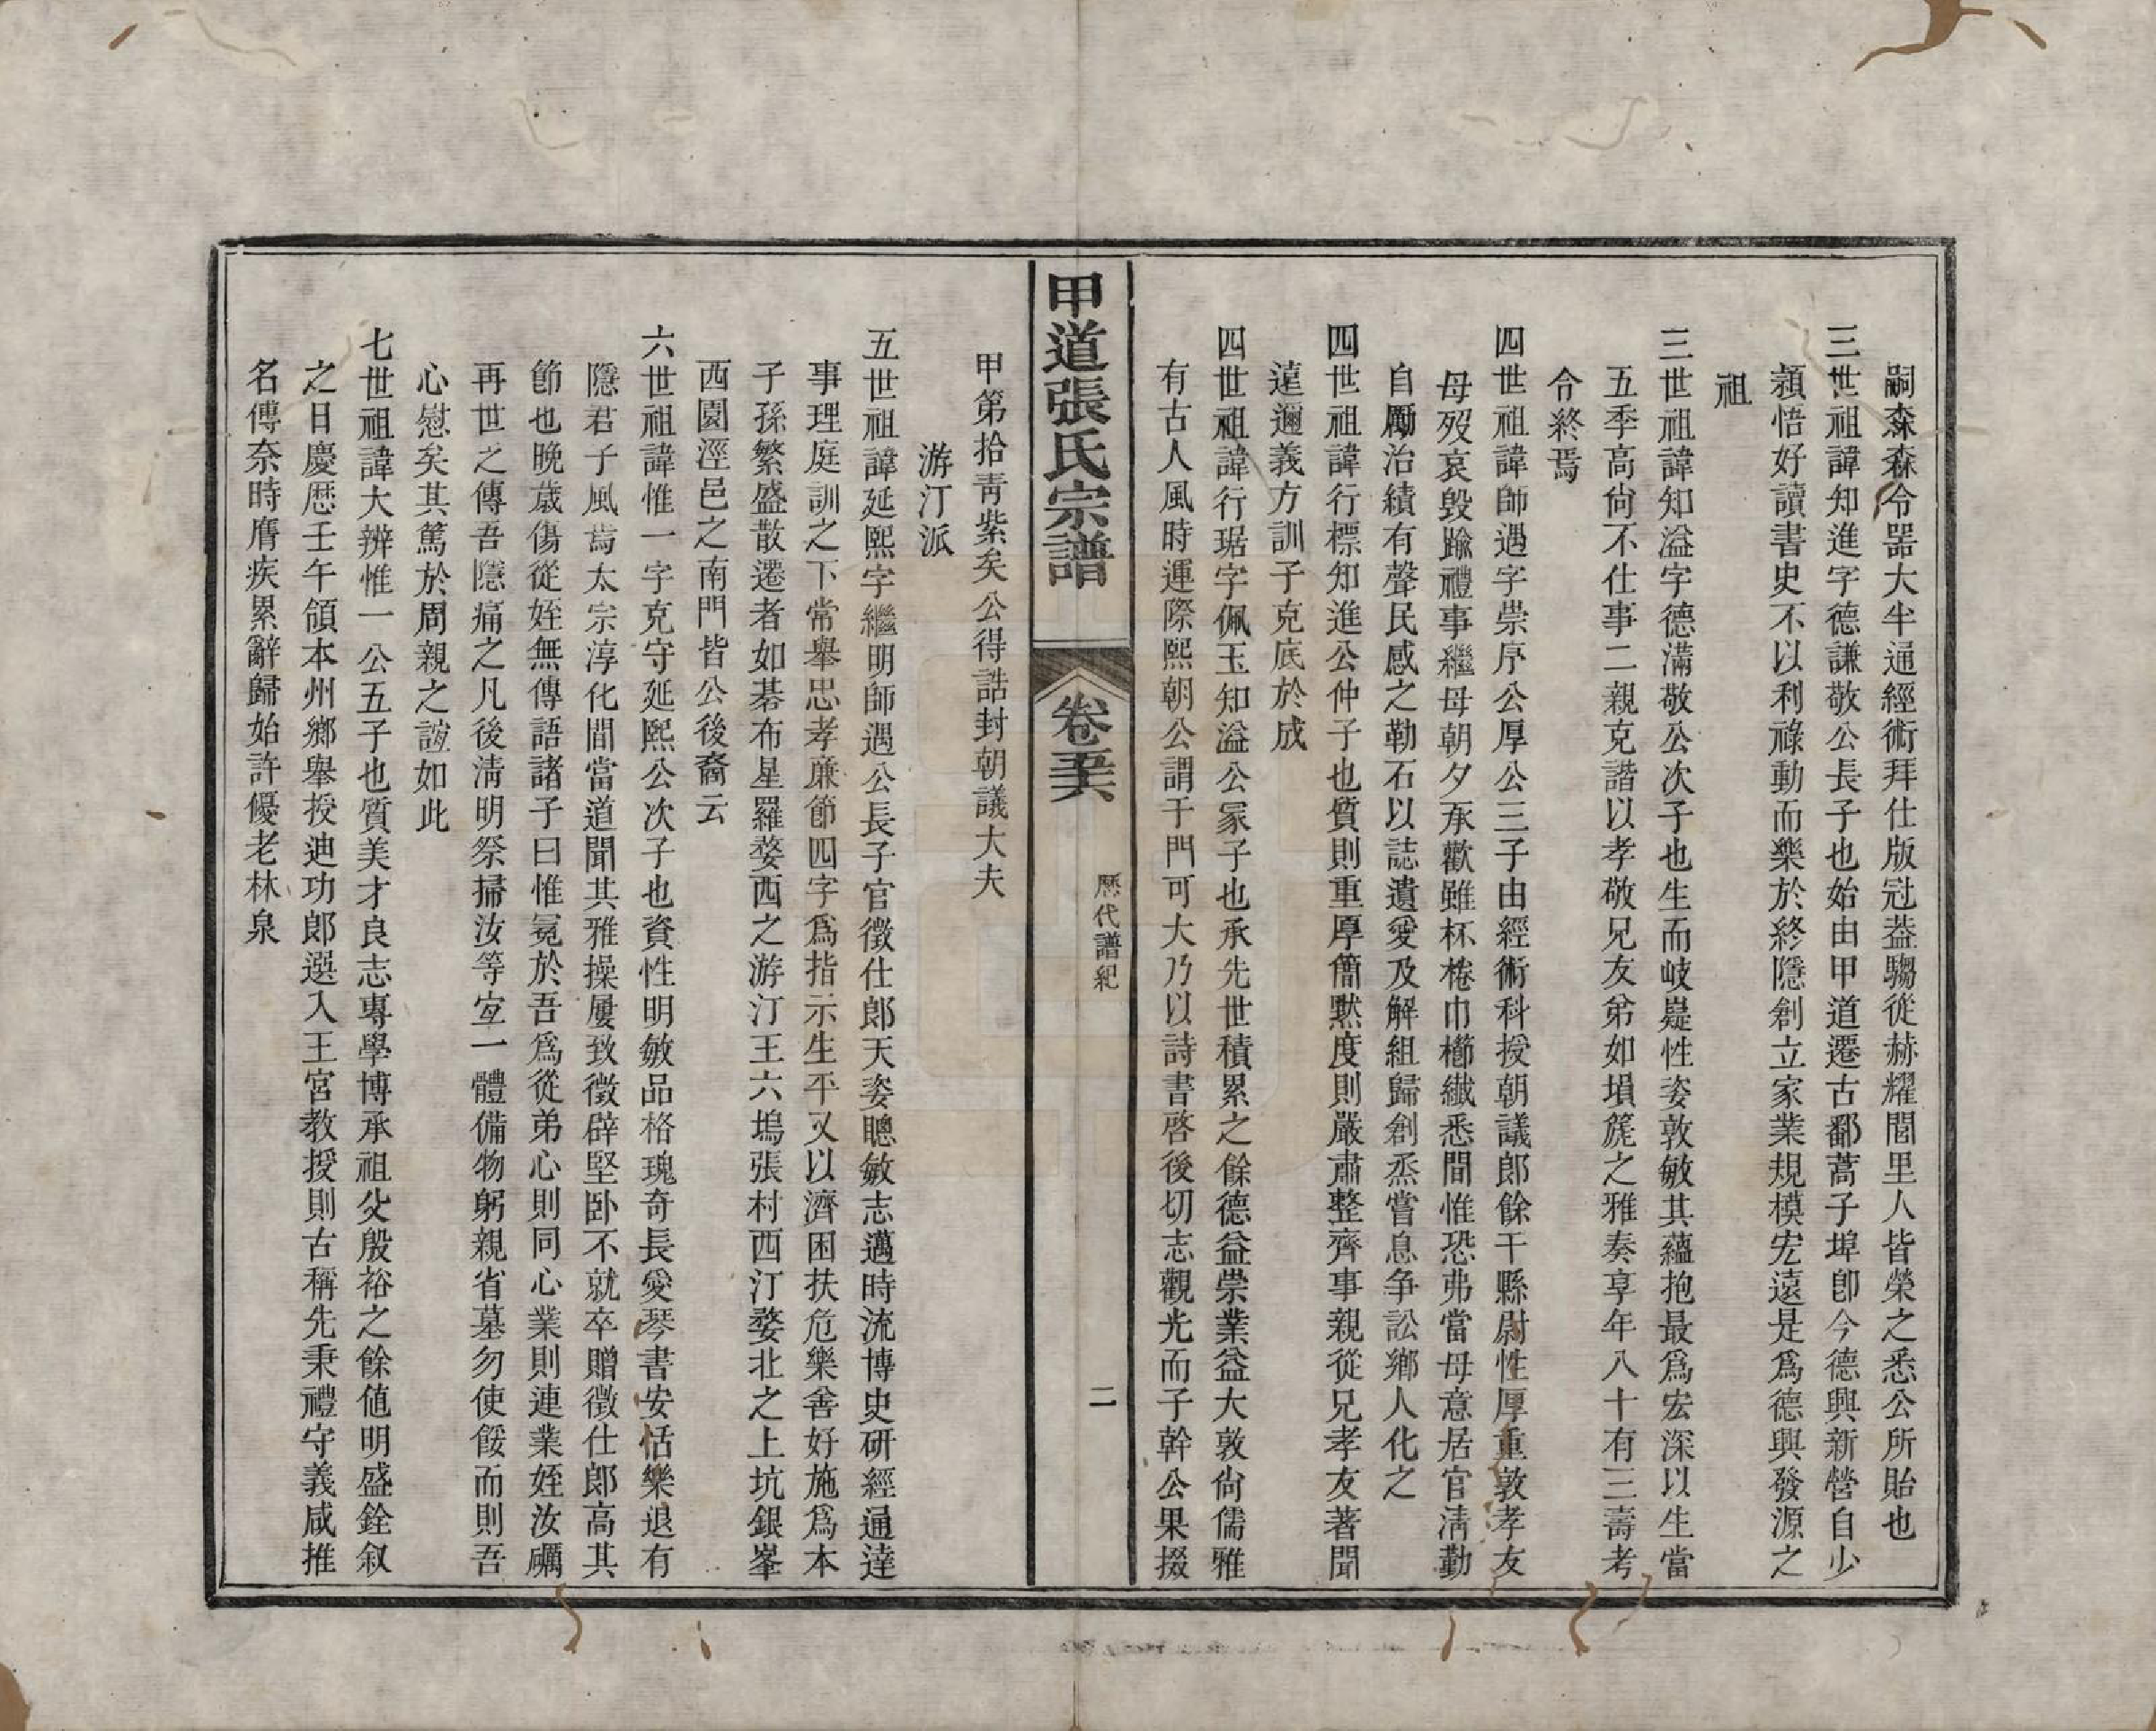 嗣森森令器大半通經術拜仕版冠葢騶從赫耀閭里人皆榮之悉公所貽也
三世祖諱知進字德謙敬公長子也始由甲道遷古鄱蒿子埠卽今德興新營自少
頴悟好讀書史不以利祿動而樂於終隱創立家業規模宏遠是爲德興發源之
祖
三世祖諱知溢字德滿敬公次子也生而岐嶷性姿敦敏其蘊抱最爲宏深以生當
五季高尙不仕事二親克諧以孝敬兄友弟如塤箎之雅奏享年八十有三壽考
令終焉
四世祖諱師遇字崇序公厚公三子由經術科授朝議郎餘干縣尉性厚重敦孝友
母歿哀毀踰禮事繼母朝夕承歡雖杯棬巾櫛纖悉間惟恐弗當母意居官淸勤
自勵治績有聲民感之勒石以誌遺愛及解組歸創烝嘗息争訟鄉人化之
四世祖諱行標知進公仲子也質則重厚簡默度則嚴肅整齊事親從兄孝友著聞
遠邇義方訓子克底於成
四世祖諱行琚字佩玉知溢公冡子也承先世積累之餘德益崇業益大敦尙儒雅
有古人風時運際熙朝公謂于門可大乃以詩書啓後切志觀光而子幹公果掇
甲道張氏宗譜
卷五十六
歷代譜紀
二
甲第拾靑紫矣公得誥封朝議大夫
游汀派
五世祖諱延熙字繼明師遇公長子官徵仕郎天姿聰敏志邁時流博史研經通達
事理庭訓之下常舉忠孝廉節四字爲指示生平又以濟困扶危樂善好施爲本
子孫繁盛散遷者如棊布星羅婺西之游汀王六塢張村西汀婺北之上坑銀峯
西園涇邑之南門皆公後裔云
六世祖諱惟一字克守延熙公次子也資性明敏品格瑰奇長愛琴書安恬樂退有
隱君子風焉太宗淳化間當道聞其雅操屢致徵辟堅卧不就卒贈徵仕郎高其
節也晚歲傷從姪無傳語諸子曰惟冕於吾爲從弟心則同心業則連業姪汝礪
再世之傳吾隱痛之凡後淸明祭掃汝等宜一體備物躬親省墓勿使餒而則吾
心慰矣其篤於周親之誼如此
七世祖諱大辨惟一公五子也質美才良志專學博承祖父殷裕之餘値明盛銓叙
之日慶歴壬午領本州鄉舉授迪功郎選入王宮教授則古稱先秉禮守義咸推
名傅奈時膺疾累辭歸始許優老林泉